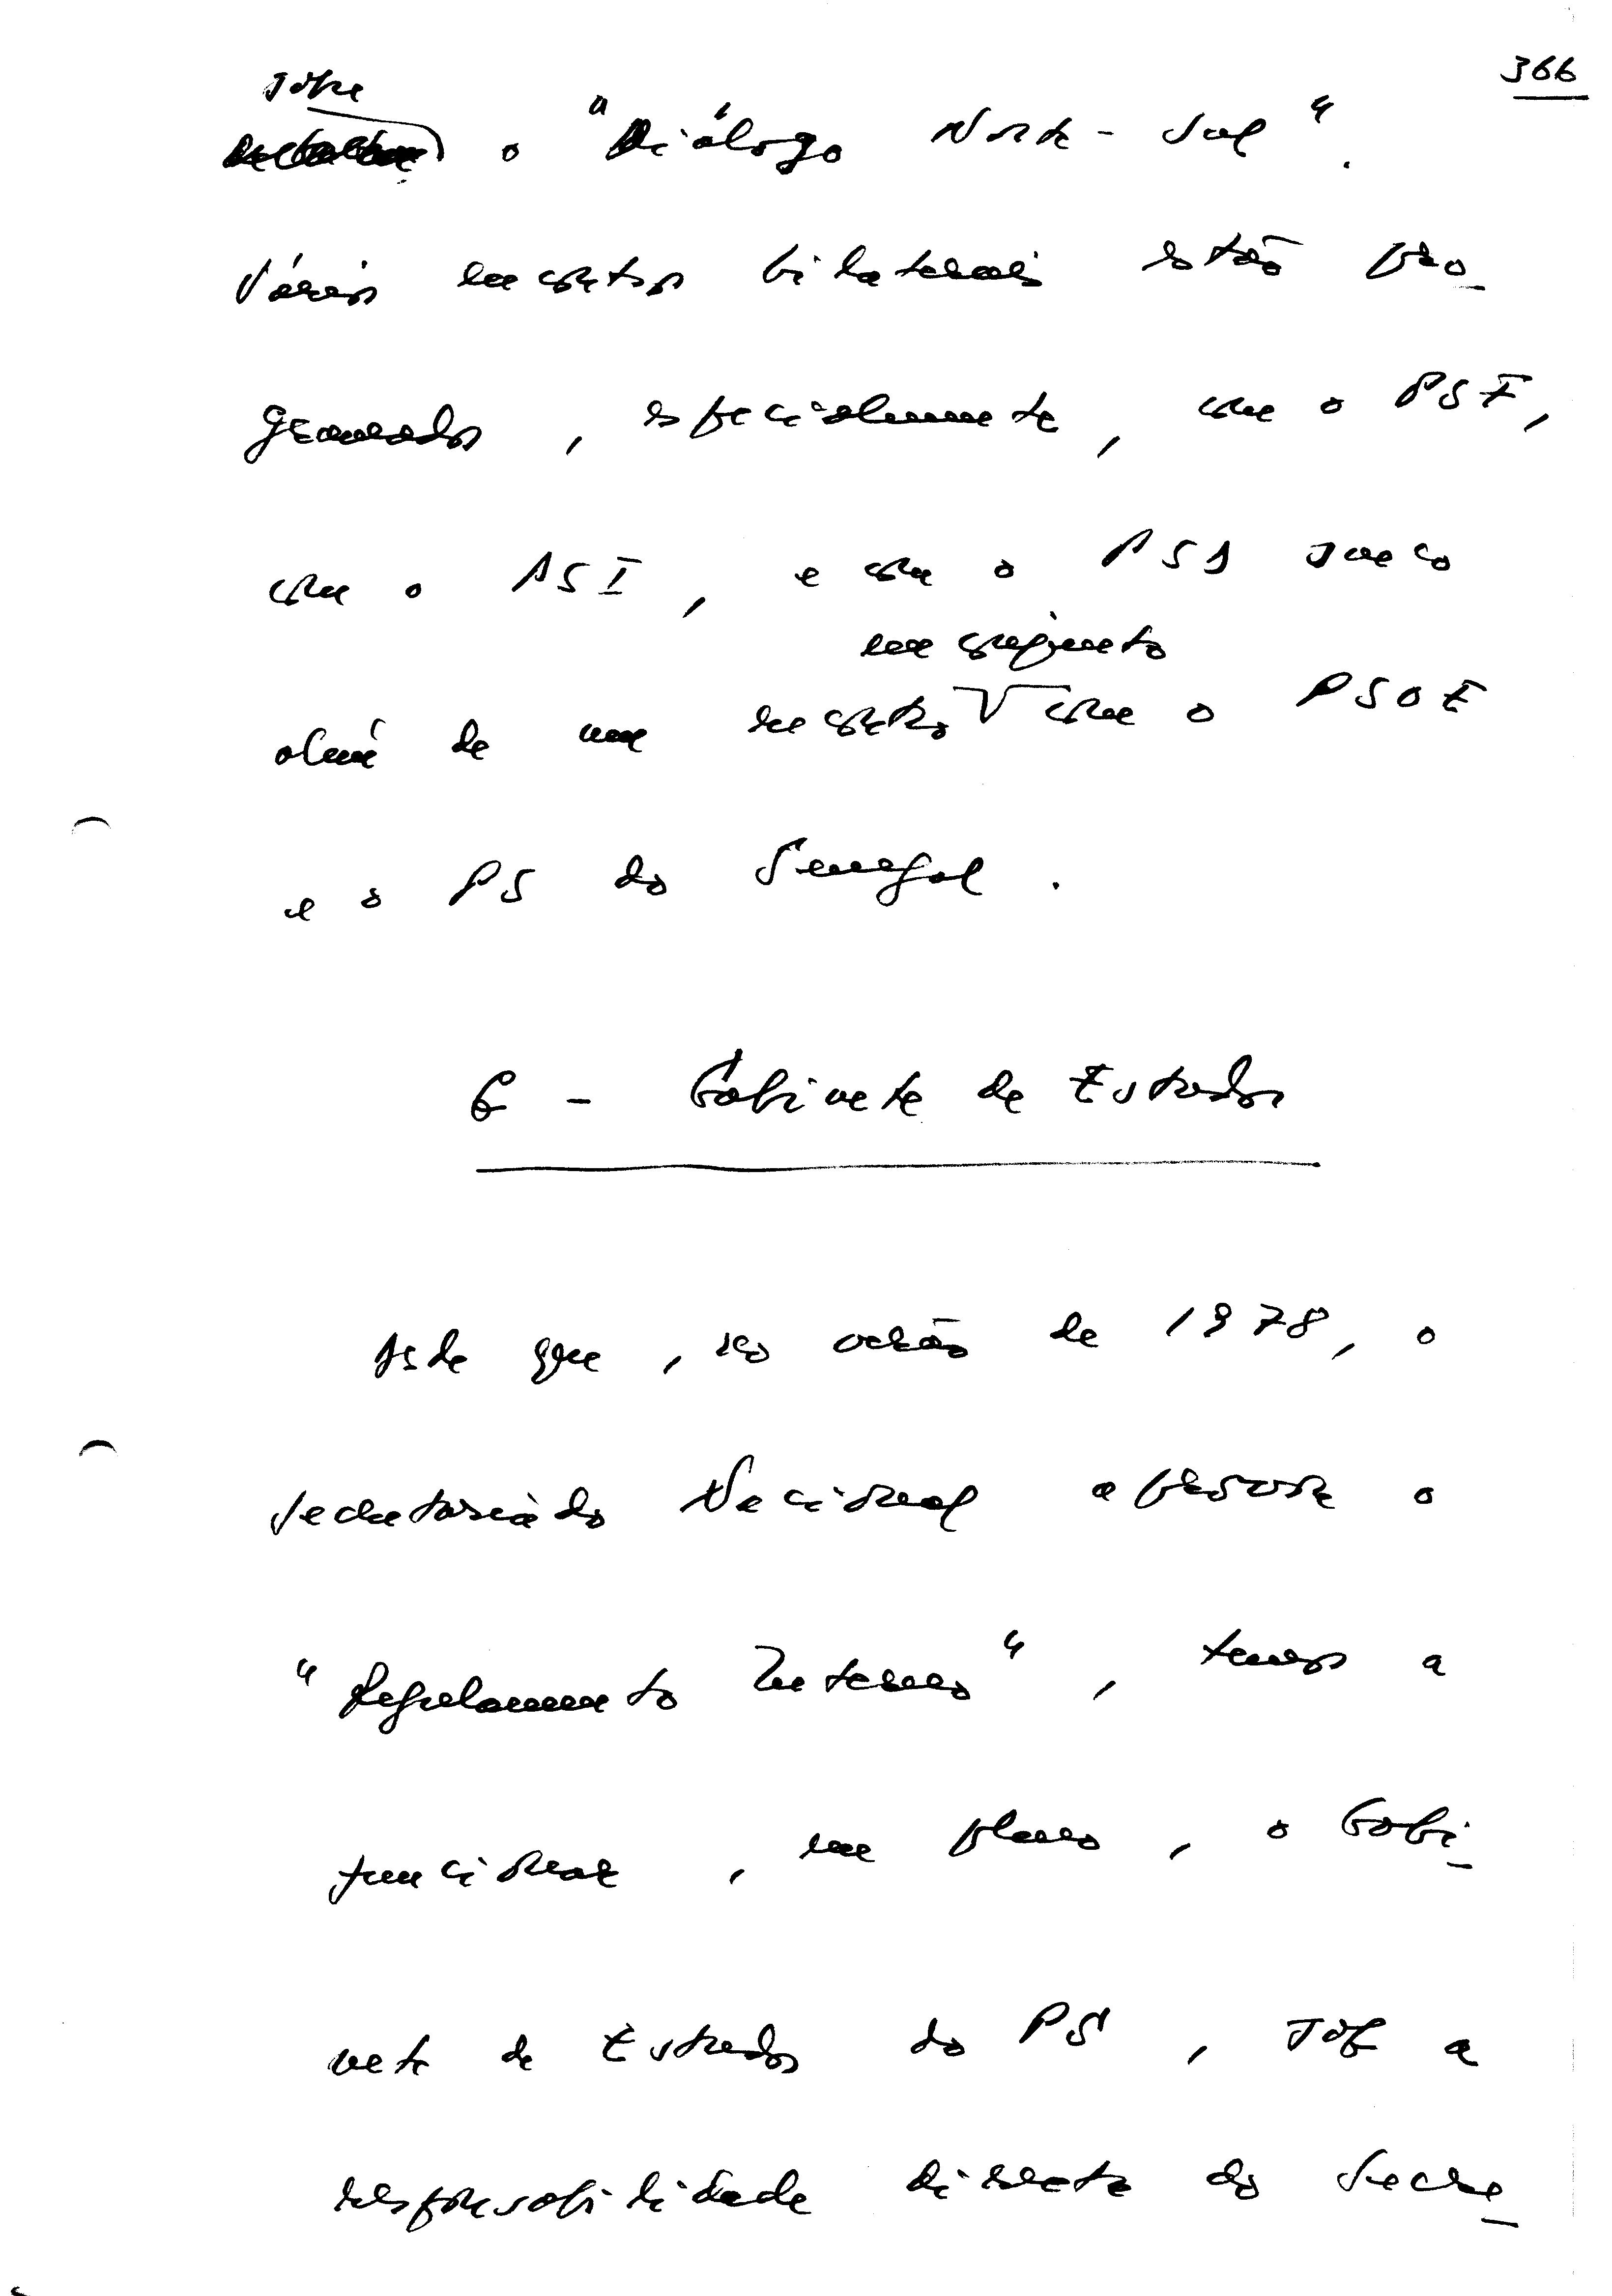 366
sobre
o "Diálogo Norte-Sul".
Vários encontros bilaterais estão pro-
gramados, especialmente, com o PSF,
com o PSI, e com o PSD sueco
em conjunto
além de um encontro com o PSOE
e o PS do Senegal.
6 - Gabinete de Estudos
Desde que, no verão de 1978, o
Secretariado Nacional aprovou o
"Regulamento Interno", temos a
funcionar, em pleno, o Gabi-
nete de Estudos do PS, sob a
responsabilidade directa do Secre-